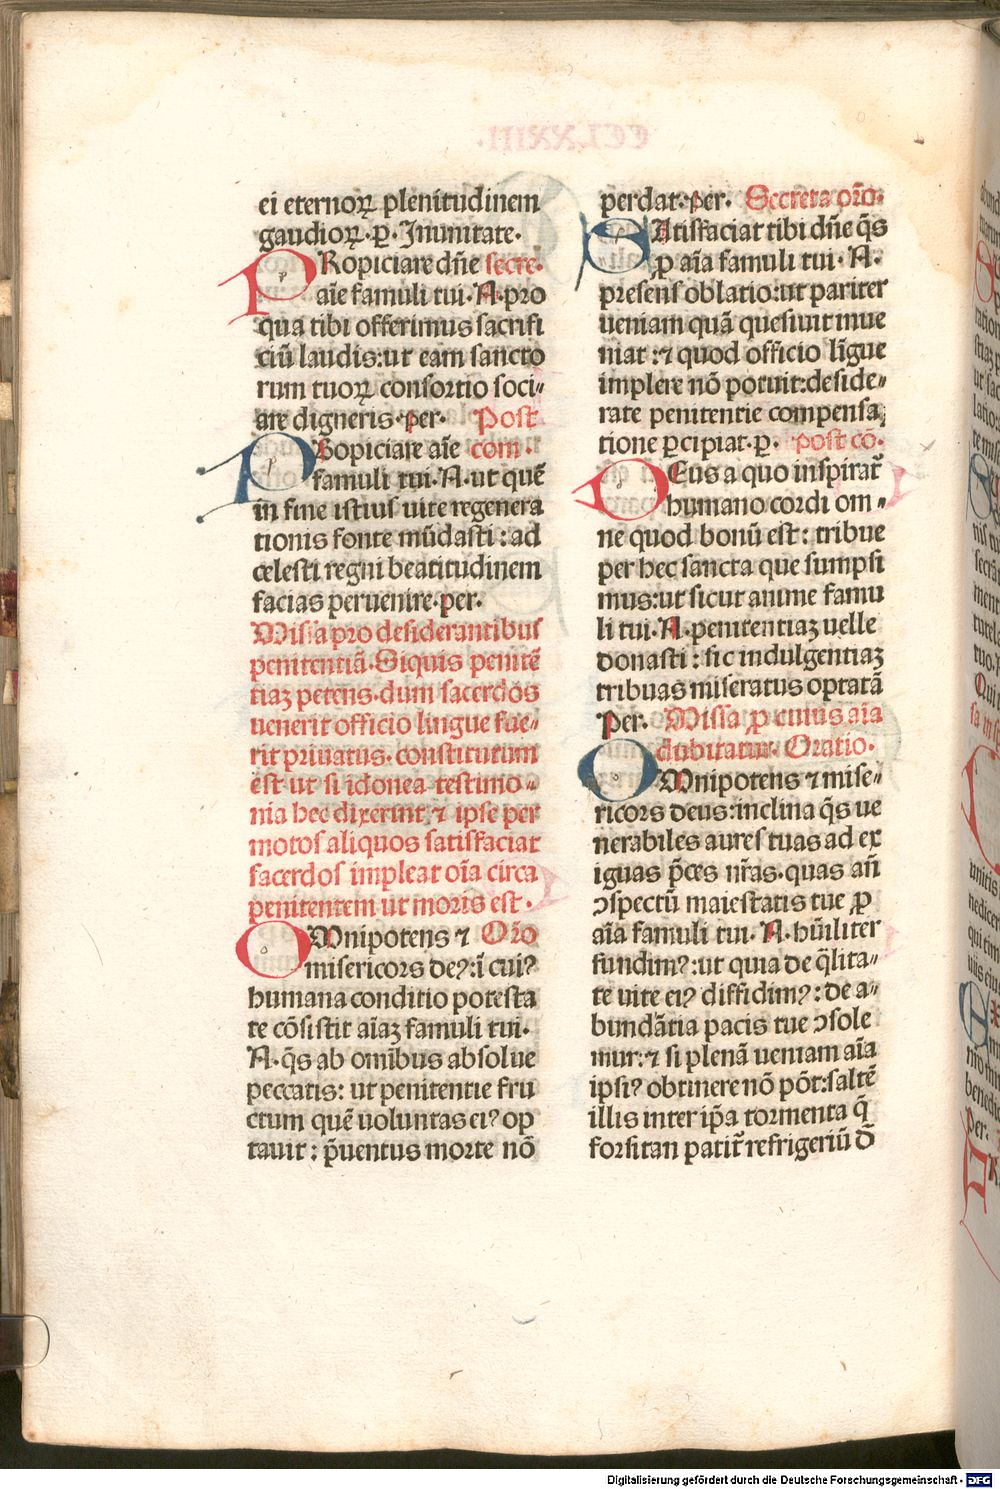 ei eternoꝝ plenitudinem
gaudioꝝ·p̲·In unitate·
PRopiciare dn̄e secre·
aīe famuli tui·N·pro
qua tibi offerimus sacrifi
ciū laudis:ut eam sancto
rum tuoꝝ consortio soci⸗
are digneris·per· Post
PRopiciare aīe com·
famuli tui·N·ut quē
in fine istius uite regenera
tionis fonte mūdasti:ad
celesti regni beatitudinem
facias peruenire·per·
Missa pro desiderantibus
penitentiā·Siquis penitē
tiaʒ petens·dum sacerdos
uenerit officio lingue fue⸗
rit priuatus·constitutum
est ut si idonea testimo⸗
nia hec dixerint ⁊ ipse per
motos aliquos satisfaciat
sacerdos impleat oīa circa
penitentem ut moris est·
OMnipotens ⁊ Orō
misericors deꝰ:ī cuiꝰ
humana conditio potesta
te cōsistit aīaʒ famuli tui·
N·q̄s ab omībus absolue
peccatis: ut penitentie fru
ctum quē uoluntas eiꝰ op
tauit: p̄uentus morte nō
perdat·per· Secreta orō·
SAtisfaciat tibi dn̄e q̄s
ꝓ aīa famuli tui·N·
presens oblatio:ut pariter
ueniam quā quesiuit inue
niat:⁊ quod officio līgue
implere nō potuit:deside⸗
rate penitentie compensa
tione ꝑcipiat·p̲· post cō·
DEus a quo inspirat̄
humano cordi om⸗
ne quod bonū est: tribue
per hec sancta que sumpsi
mus:ut sicut anime famu
li tui·N·penitentiaʒ uelle
donasti: sic indulgentiaʒ
tribuas miseratus optatā
Per· Missa ꝓ cuius aīa
dubitatur· Oratio·
OMnipotens ⁊ mise⸗
ricors deus:inclina q̄s ue
nerabiles aures tuas ad ex
iguas p̄ces nr̄as·quas an̄
ↄspectū maiestatis tue ꝓ
aīa famuli tui·N·hūiliter
fundimꝰ:ut quia de q̄lita⸗
te uite eiꝰ diffidimꝰ:de a⸗
bundātia pacis tue ↄsole
mur:⁊ si plenā ueniam aīa
ipsiꝰ obtinere nō pōt:saltē
illis inter ip̄a tormenta q̄
forsitan patit̄ refrigeriū d̄
Digitalisierung gefördert durch die Deutsche Forschungsgemeinschaft - DFG